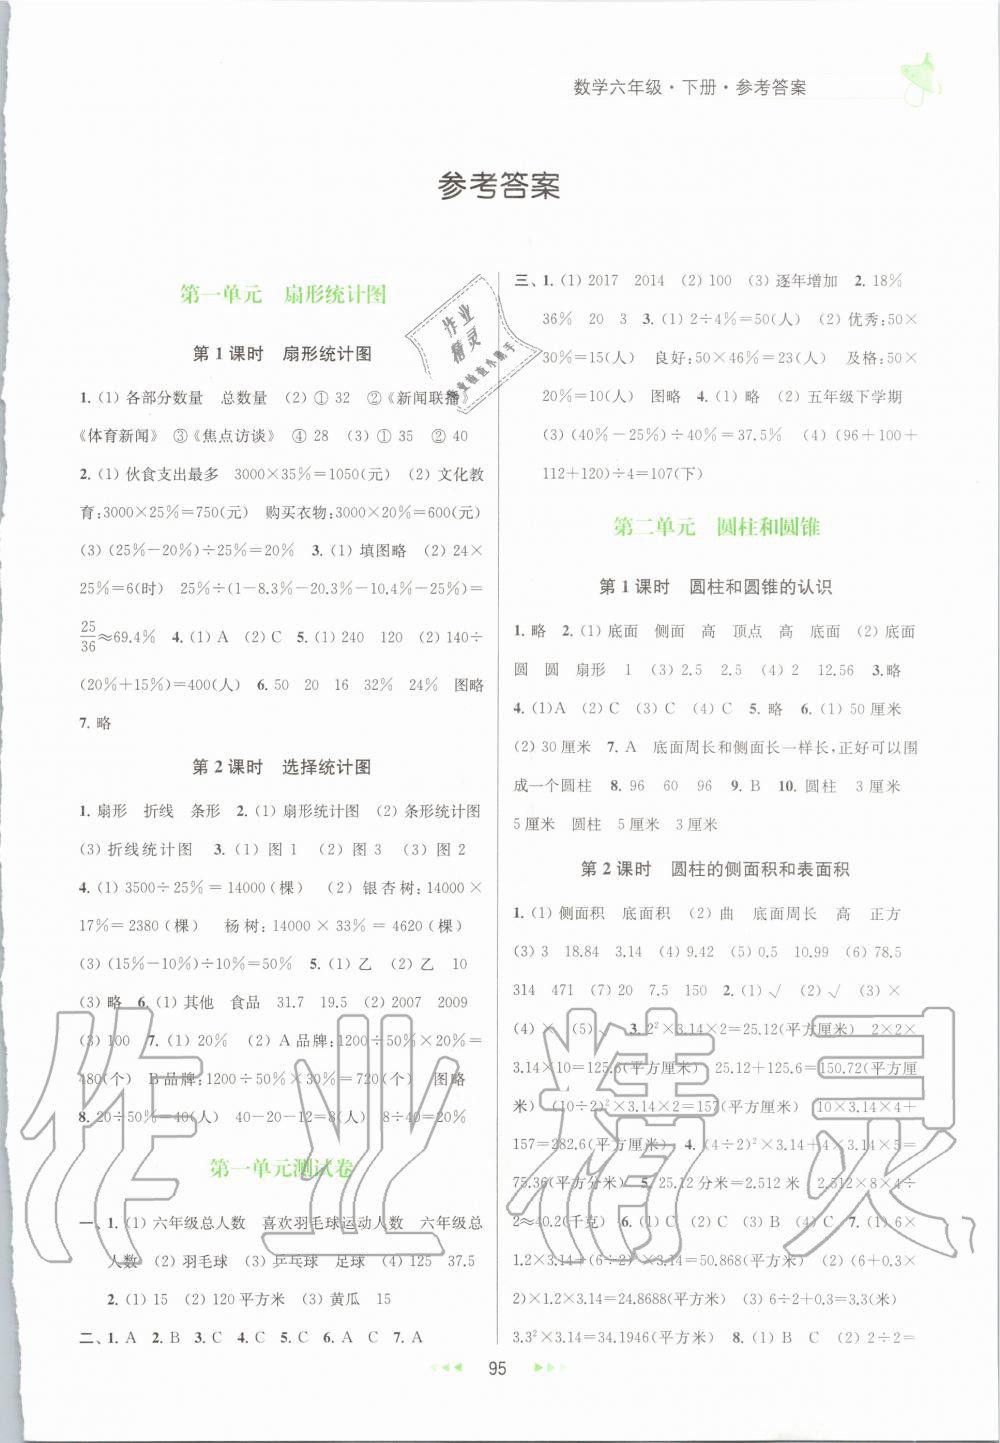 数学六年级·下册·参考答案
参考答案
第一单元 扇形统计图
第 1 课时 扇形统计图
1. (1) 各部分数量 总数量 (2) ① 32 ②《新闻联播》
《体育新闻》 ③《焦点访谈》 ④ 28 (3) ① 35 ② 40
2. (1) 伙食支出最多 3000×35%=1050(元) (2) 文化教
育:3000×25%=750(元) 购买衣物:3000×20%=600(元)
(3) (25%-20%)÷25%=20% 3. (1) 填图略 (2) 24×
25%=6(时) 25%÷(1-8.3%-20.3%-10.4%-25%)=
25/36≈69.4% 4. (1) A (2) C 5. (1) 240 120 (2) 140÷
(20%+15%)=400(人) 6. 50 20 16 32% 24% 图略
7. 略
第 2 课时 选择统计图
1. 扇形 折线 条形 2. (1) 扇形统计图 (2) 条形统计图
(3) 折线统计图 3. (1) 图 1 (2) 图 3 (3) 图 2
4. (1) 3500÷25%=14000(棵) (2) 银杏树:14000×
17%=2380(棵) 杨树:14000×33%=4620(棵)
(3) (15%-10%)÷10%=50% 5. (1) 乙 (2) 乙 10
(3) 略 6. (1) 其他 食品 31.7 19.5 (2) 2007 2009
(3) 100 7. (1) 20% (2) A 品牌:1200×50%×20%=
480(个) B 品牌:1200×50%×30%=720(个) 图略
8. 20÷50%=40(人) 40-20-12=8(人) 8÷40=20%
第一单元测试卷
一、1. (1) 六年级总人数 喜欢羽毛球运动人数 六年级总
人数 (2) 羽毛球 (3) 乒乓球 足球 (4) 125 37.5
2. (1) 15 (2) 120 平方米 (3) 黄瓜 15
二、1. A 2. B 3. C 4. C 5. C 6. A C 7. A
三、1. (1) 2017 2014 (2) 100 (3) 逐年增加 2. 18%
36% 20 3 3. (1) 2÷4%=50(人) (2) 优秀:50×
30%=15(人) 良好:50×46%=23(人) 及格:50×
20%=10(人) 图略 4. (1) 略 (2) 五年级下学期
(3) (40%-25%)÷40%=37.5% (4) (96+100+
112+120)÷4=107(下)
第二单元 圆柱和圆锥
第 1 课时 圆柱和圆锥的认识
1. 略 2. (1) 底面 侧面 高 顶点 高 底面 (2) 底面
圆 圆 扇形 1 (3) 2.5 2.5 (4) 2 12.56 3. 略
4. (1)A (2) C (3) C (4) C 5. 略 6. (1) 50 厘米
(2) 30 厘米 7. A 底面周长和侧面长一样长,正好可以围
成一个圆柱 8. 96 60 96 9. B 10. 圆柱 3 厘米
5 厘米 圆柱 5 厘米 3 厘米
第 2 课时 圆柱的侧面积和表面积
1. (1) 侧面积 底面积 (2) 曲 底面周长 高 正方
(3) 3 18.84 3.14 (4) 9.42 (5) 0.5 10.99 (6) 78.5
314 471 (7) 20 7.5 150 2. (1) √ (2) √ (3) ×
(4) × (5) √ 3. 2²×3.14×2=25.12(平方厘米) 2×2×
3.14×10=125.6(平方厘米) 25.12+125.6=150.72(平方厘
米) (10÷2)²×3.14×2=157(平方厘米) 10×3.14×4+
157=282.6(平方厘米) 4. (4÷2)²×3.14+4×3.14×5=
75.36(平方分米) 5. 25.12分米=2.512 米 2.512×8×4÷
2≈40.2(千克) 6. (1) C (2) C (3) C (4) C 7. (1) 6×
1.2×3.14+(6÷2)²×3.14=50.868(平方米) (2) (6+0.3×
2)×1.2×3.14=24.8688(平方米) (3) 6÷2+0.3=3.3(米)
3.3²×3.14=34.1946(平方米) 8. (1) C (2) 2÷2=
95
作业精灵
作业
精灵